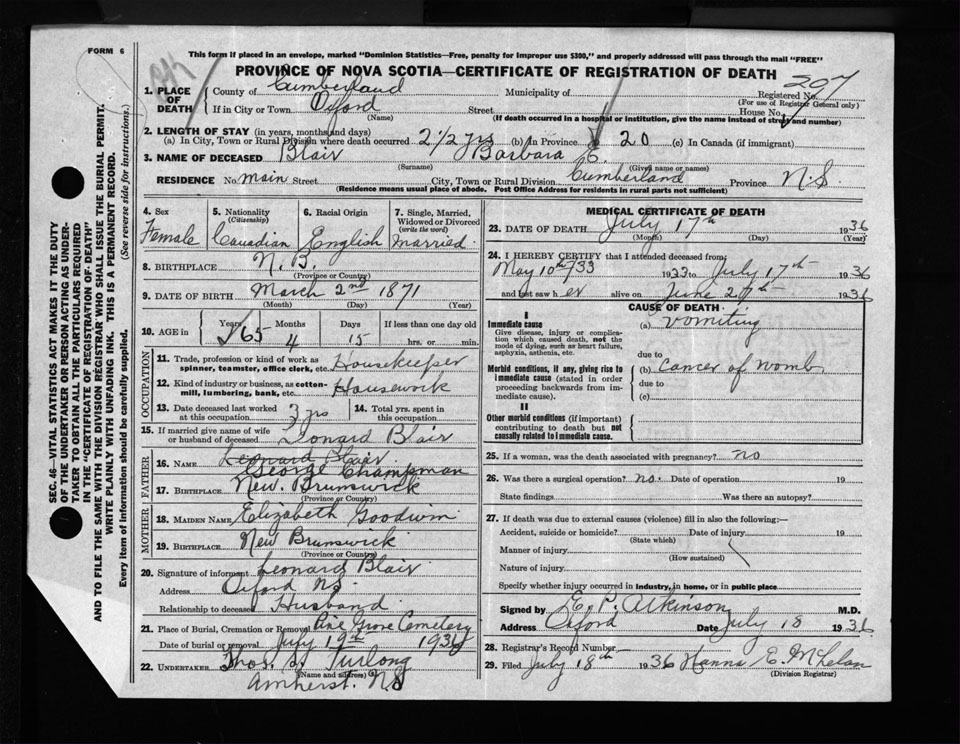 FORM 6
This form if placed in an envelope, marked "Dominion Statistics—Free, penalty for improper use $300," and properly addressed will pass through the mail "FREE"
PROVINCE OF NOVA SCOTIA—CERTIFICATE OF REGISTRATION OF DEATH
SEC. 46—VITAL STATISTICS ACT MAKES IT THE DUTY
OF THE UNDERTAKER OR PERSON ACTING AS UNDER-
TAKER TO OBTAIN ALL THE PARTICULARS REQUIRED
IN THE "CERTIFICATE OF REGISTRATION OF DEATH"
AND TO FILE THE SAME WITH THE DIVISION REGISTRAR WHO SHALL ISSUE THE BURIAL PERMIT.
WRITE PLAINLY WITH UNFADING INK. THIS IS A PERMANENT RECORD.
Every item of information should be carefully supplied. (See reverse side for instructions.)
1. PLACE OF DEATH County of Cumberland Municipality of Registered No. 207
(For use of Registrar General only)
If in City or Town Oxford Street House No.
(Name) (If death occurred in a hospital or institution, give the name instead of street and number)
2. LENGTH OF STAY (in years, months and days)
(a) In City, Town or Rural Division where death occurred 2 1/2 yrs (b) In Province 20 (c) In Canada (if immigrant)
3. NAME OF DECEASED Blair Barbara E.
(Surname) (Given name or names)
RESIDENCE No. Main Street City, Town or Rural Division Cumberland Province N.S
(Residence means usual place of abode. Post Office Address for residents in rural parts not sufficient)
4. Sex Female
5. Nationality (Citizenship) Canadian
6. Racial Origin English
7. Single, Married, Widowed or Divorced (write the word) Married.
8. BIRTHPLACE N.B.
(Province or Country)
9. DATE OF BIRTH March 2nd 1871
(Month) (Day) (Year)
10. AGE in Years 65 Months 4 Days 15 If less than one day old
hrs. or min.
OCCUPATION
11. Trade, profession or kind of work as spinner, teamster, office clerk, etc. Housekeeper
12. Kind of industry or business, as cotton-mill, lumbering, bank, etc. Housework
13. Date deceased last worked at this occupation 3 yrs
14. Total yrs. spent in this occupation
15. If married give name of wife or husband of deceased Leonard Blair
FATHER
16. NAME Leonard Blair
George Champman
17. BIRTHPLACE New Brunswick
(Province or Country)
MOTHER
18. MAIDEN NAME Elizabeth Goodwin
19. BIRTHPLACE New Brunswick
(Province or Country)
20. Signature of informant Leonard Blair
Address Oxford NS
Relationship to deceased Husband
21. Place of Burial, Cremation or Removal Pine Grove Cemetery
Date of burial or removal July 19th 1936
22. UNDERTAKER Thos. Furlong
(Name and address)
Amherst. NS
MEDICAL CERTIFICATE OF DEATH
23. DATE OF DEATH July 17th 1936
(Month) (Day) (Year)
24. I HEREBY CERTIFY that I attended deceased from:
May 10th/33 1933 to July 17th 1936
and last saw her alive on June 27th 1936
CAUSE OF DEATH
I
Immediate cause (a) Vomiting
Give disease, injury or complication which caused death, not the mode of dying, such as heart failure, asphyxia, asthenia, etc.
due to
Morbid conditions, if any, giving rise to immediate cause (stated in order proceeding backwards from immediate cause). (b) Cancer of womb
due to
(c)
II
Other morbid conditions (if important) contributing to death but not causally related to immediate cause.
25. If a woman, was the death associated with pregnancy? no
26. Was there a surgical operation? no. Date of operation 19
State findings Was there an autopsy?
27. If death was due to external causes (violence) fill in also the following:—
Accident, suicide or homicide? Date of injury 19
(State which)
Manner of injury
(How sustained)
Nature of injury
Specify whether injury occurred in industry, in home, or in public place
Signed by E. P. Atkinson M.D.
Address Oxford Date July 18 1936
28. Registrar's Record Number
29. Filed July 18th 1936 Hanna E. McPhelan
(Division Registrar)